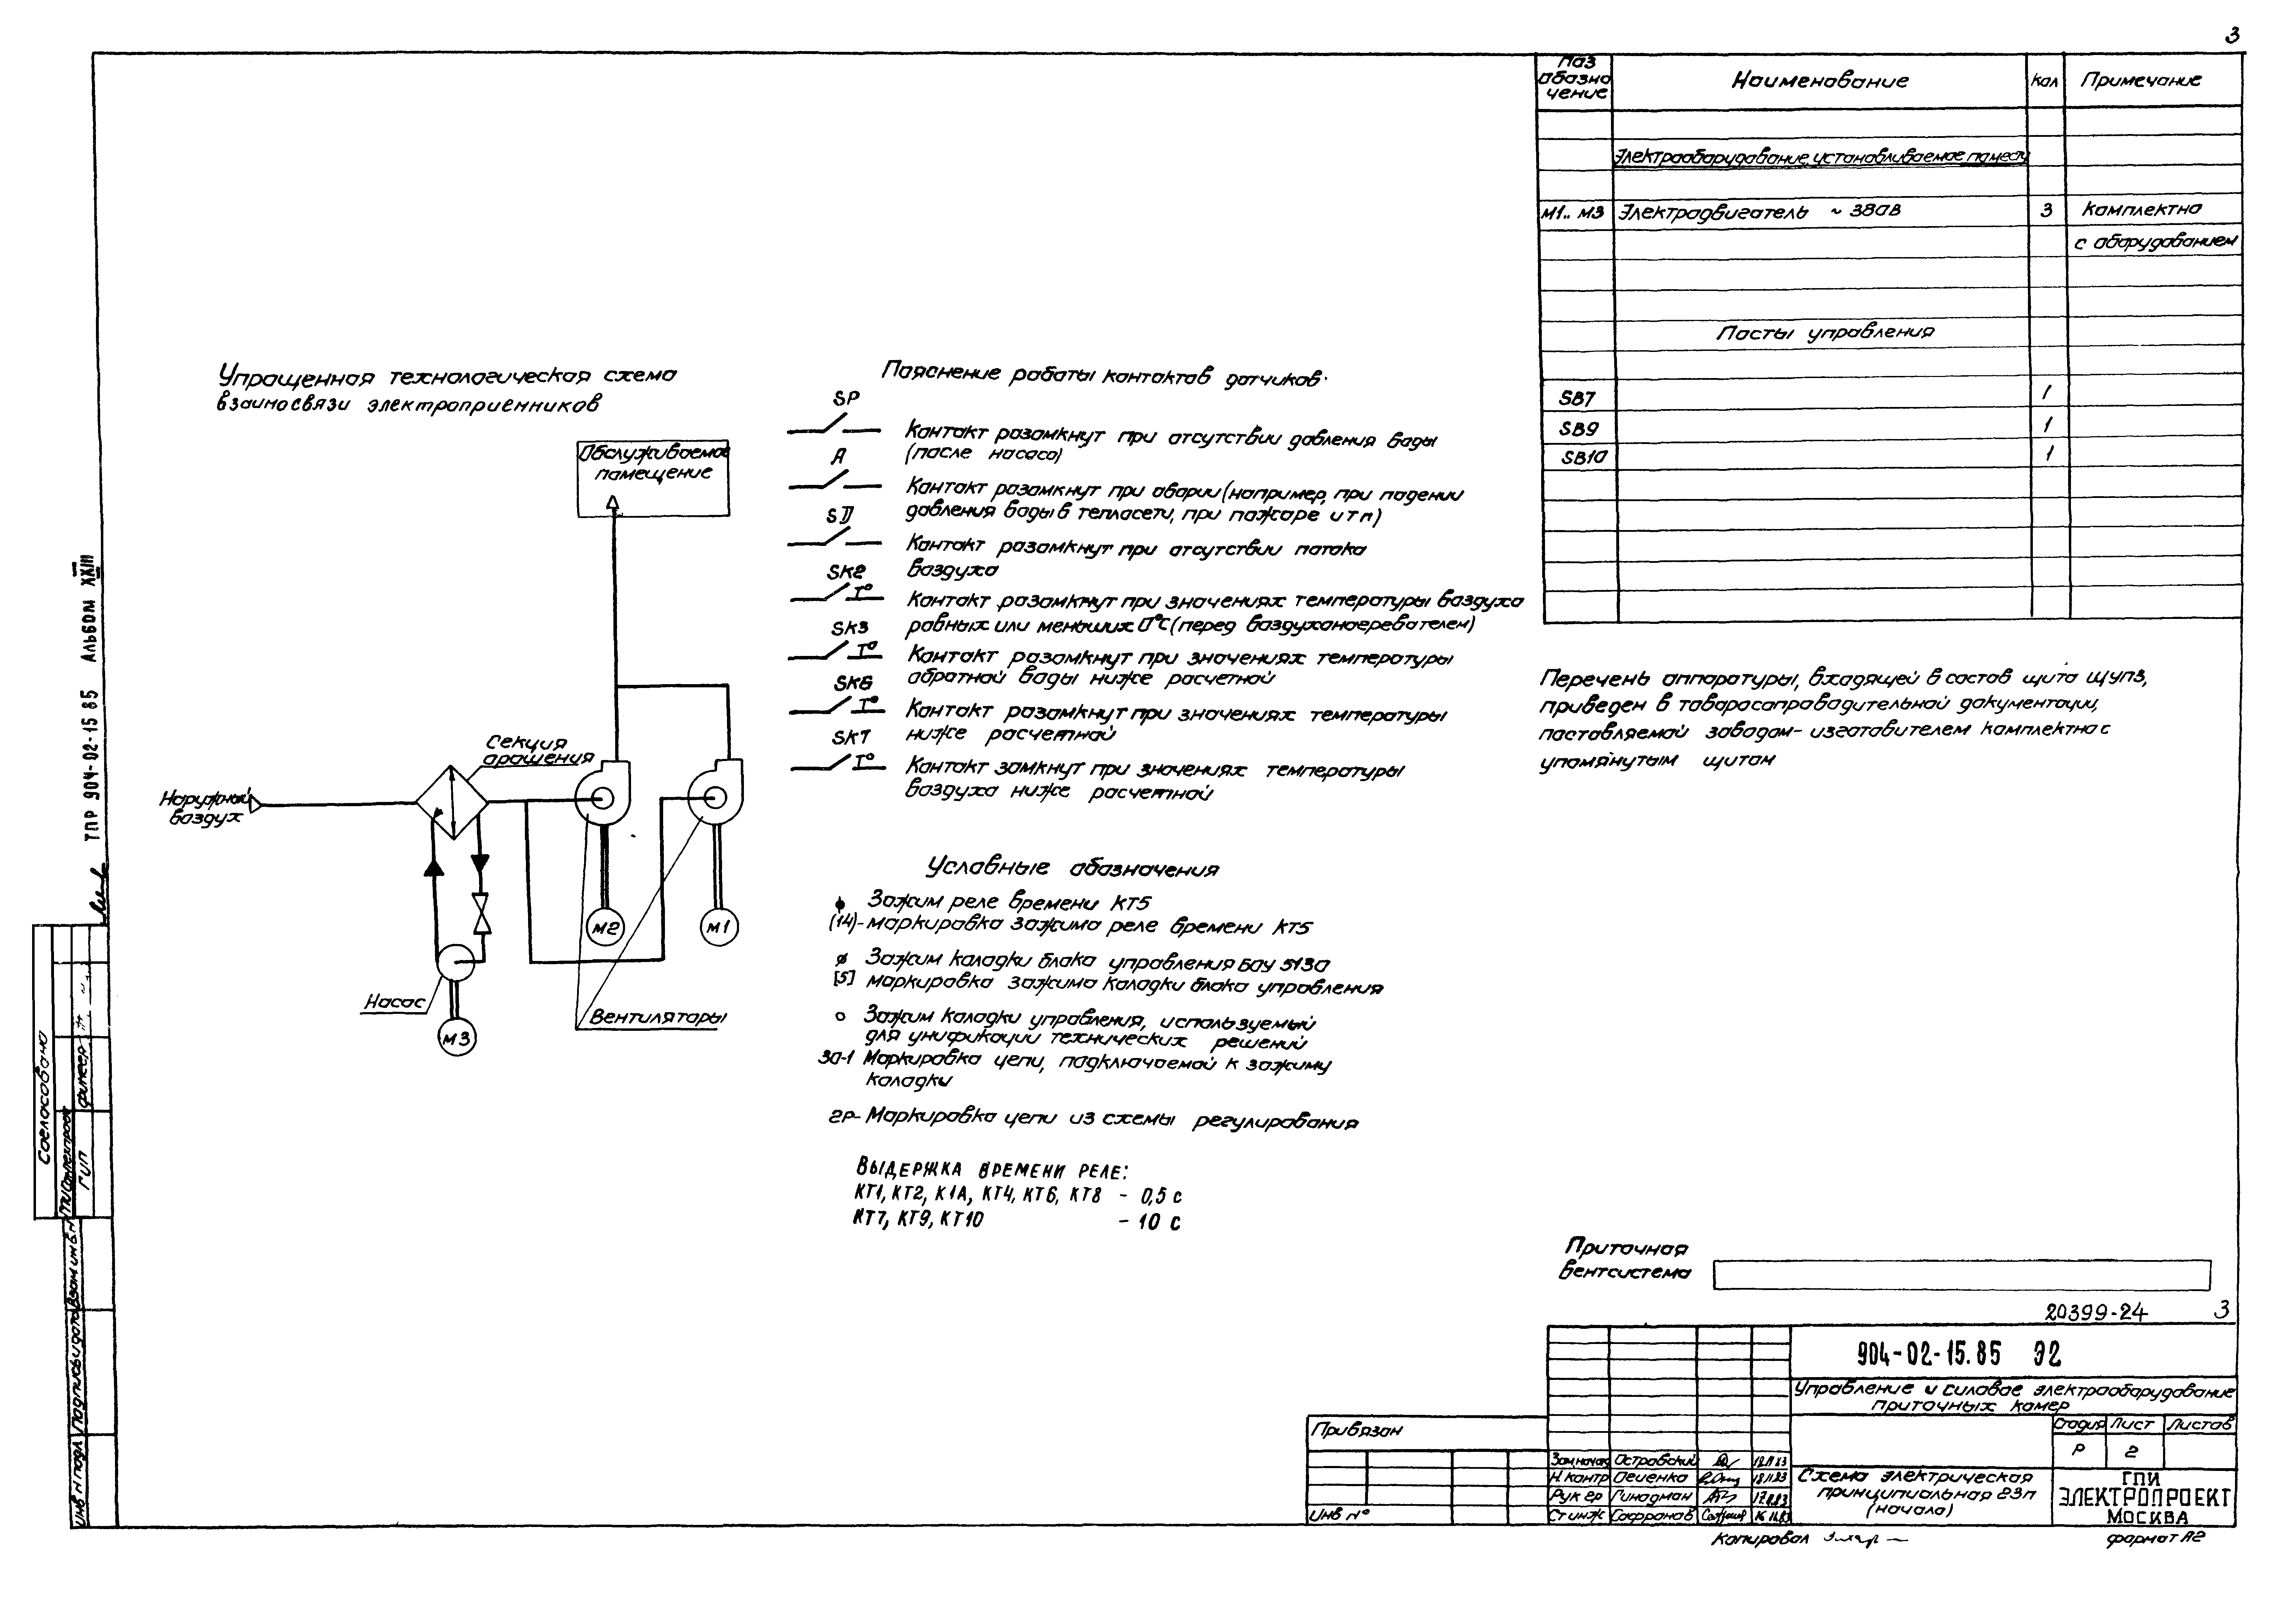 3
Поз обозначение
Наименование
Кол
Примечание
Электрооборудование, устанавливаемое по месту
М1.. М3 Электродвигатель ~ 380В 3 Комплектно
с оборудованием
Посты управления
SB7 1
SB9 1
SB10 1
Упрощенная технологическая схема
взаимосвязи электроприемников
Обслуживаемое
помещение
Секция
орошения
Наружный
воздух
М2
М1
Насос
М3
Вентиляторы
Пояснение работы контактов датчиков:
SP
Контакт разомкнут при отсутствии давления воды
(после насоса)
А
Контакт разомкнут при аварии (например, при падении
давления воды в теплосети, при пожаре и т п)
SD
Контакт разомкнут при отсутствии потока
воздуха
SK2
T°
Контакт разомкнут при значениях температуры воздуха
равных или меньших 0°С (перед воздухонагревателем)
SK3
T°
Контакт разомкнут при значениях температуры
обратной воды ниже расчетной
SK6
T°
Контакт разомкнут при значениях температуры
ниже расчетной
SK7
T°
Контакт замкнут при значениях температуры
воздуха ниже расчетной
Условные обозначения
Зажим реле времени КТ5
(14)- маркировка зажима реле времени КТ5
Зажим колодки блока управления БОУ 5130
[5] маркировка зажима колодки блока управления
Зажим колодки управления, используемый
для унификации технических решений
30-1 Маркировка цепи, подключаемой к зажиму
колодки
2Р- Маркировка цепи из схемы регулирования
Выдержка времени реле:
КТ1, КТ2, К1А, КТ4, КТ6, КТ8 - 0,5 с
КТ7, КТ9, КТ10 - 10 с
Перечень аппаратуры, входящей в состав щита ЩУПЗ,
приведен в товаросопроводительной документации,
поставляемой заводом-изготовителем комплектно с
упомянутым щитом
Приточная
вентсистема
20399-24 3
904-02-15.85 Э2
Управление и силовое электрооборудование
приточных камер
Стадия Лист Листов
Р 2
Схема электрическая
принципиальная 23п
(начало)
ГПИ
ЭЛЕКТРОПРОЕКТ
МОСКВА
Привязан
Инв N°
Зам нач отд Островский 18.11.83
Н. контр Пеценко 18.11.83
Рук гр Гинодман 17.11.83
Ст инж Сафронов 16.11.83
Копировал
формат А2
ТПР 904-02-15 85 Альбом XXIII
Согласовано
ГИП
Инв N подл Подпись и дата Взам инв N